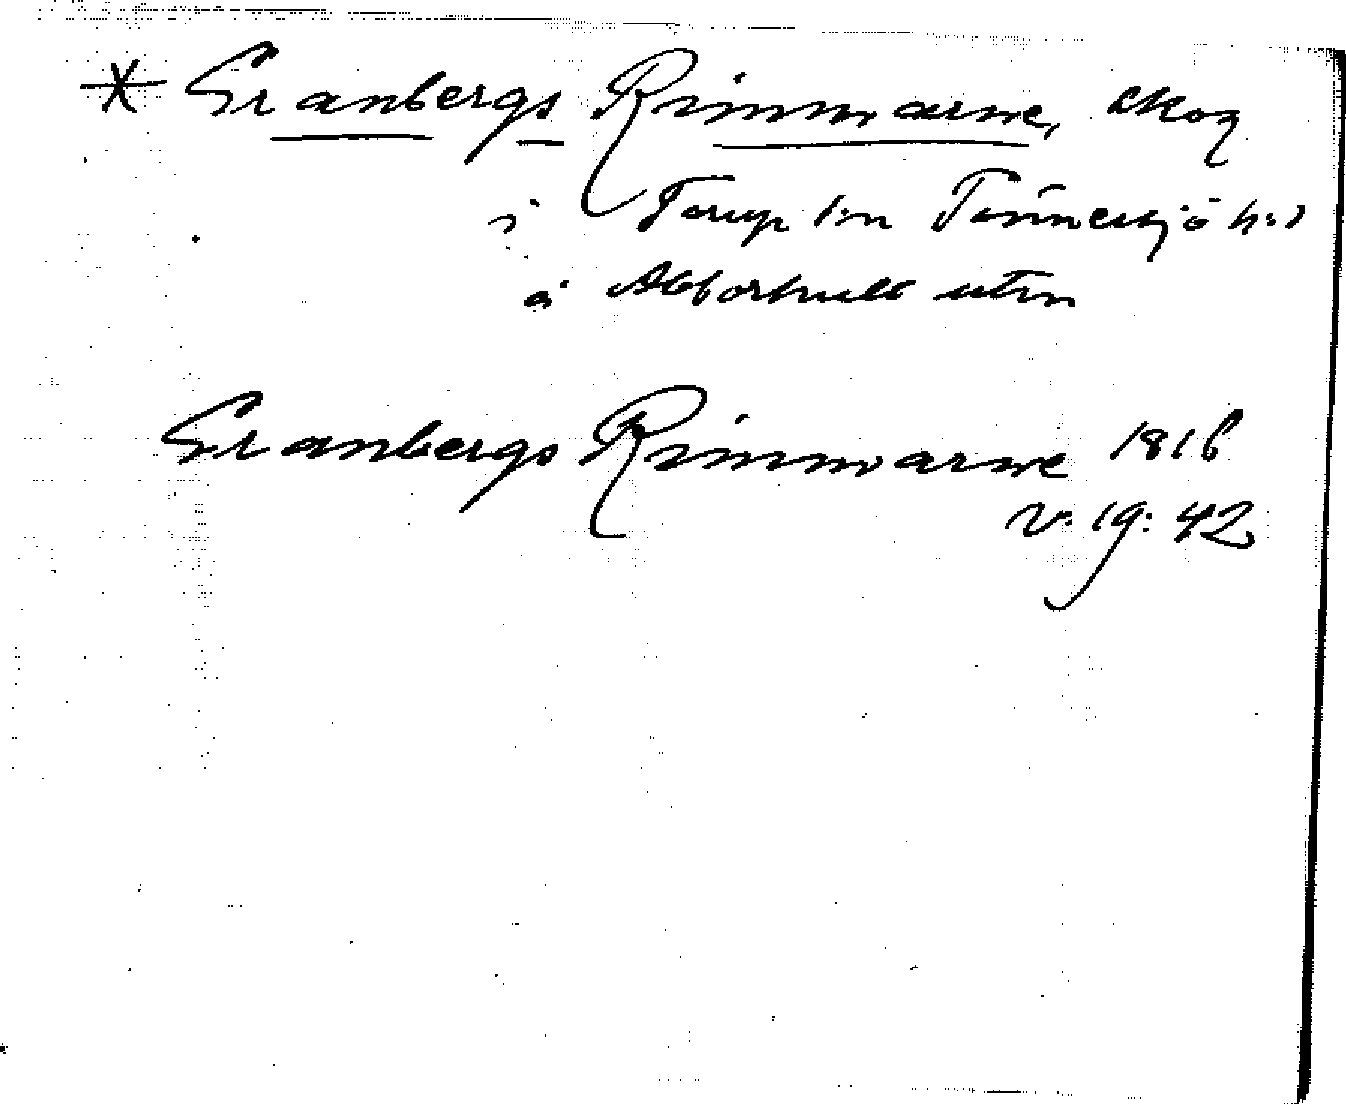 * Granbergs Rimmarne, skog
i Torup sn Tönnersjö h:d
å Abborhult utm
Granbergs Rimmarne 1816
v. 19: 42